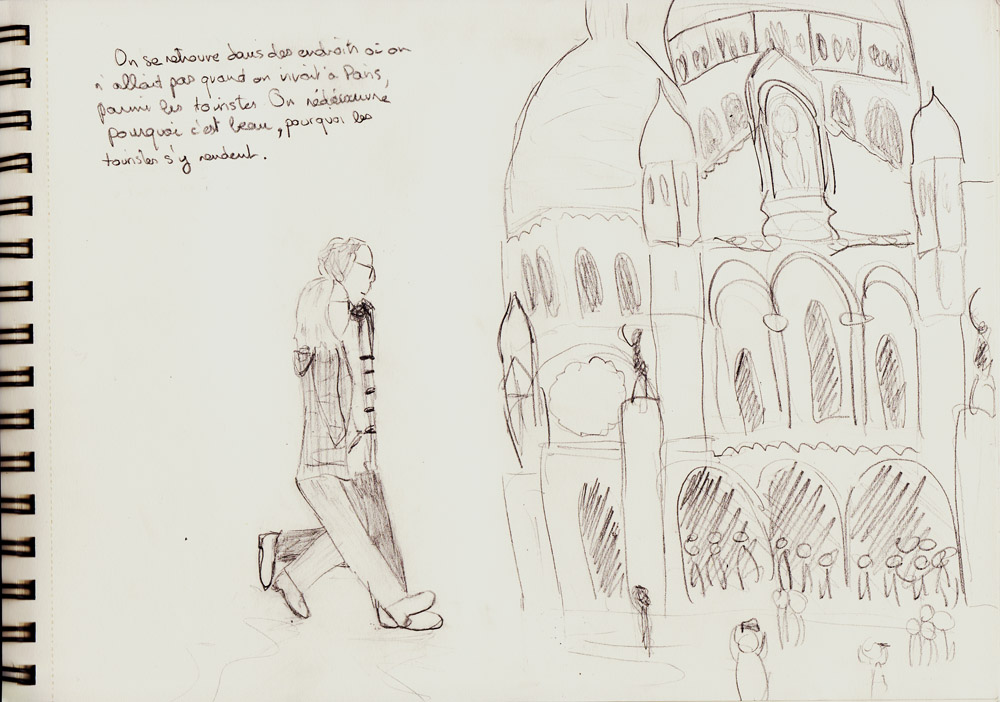 On se retrouve dans des endroits où on
n'allait pas quand on vivait à Paris,
parmi les touristes. On redécouvre
pourquoi c'est beau, pourquoi les
touristes s'y rendent.